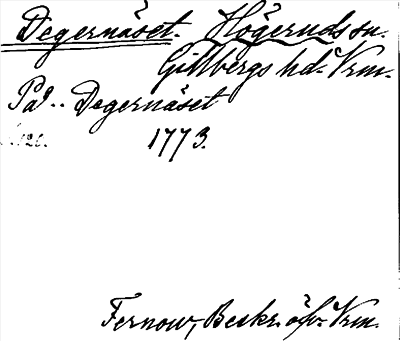 Degernäset. Högeruds sn.
Gillbergs hd. Vrm.
På .. Degernäset
1773.
Fernow, Beskr. öfv. Vrm.